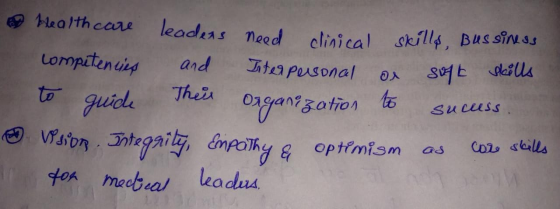 Healthcare leaders need clinical skills, Bussiness
competencies and Interpersonal or soft skills
to guide Their organization to success.
Vision. Integrity, Empathy & optimism as core skills
for medical leaders.